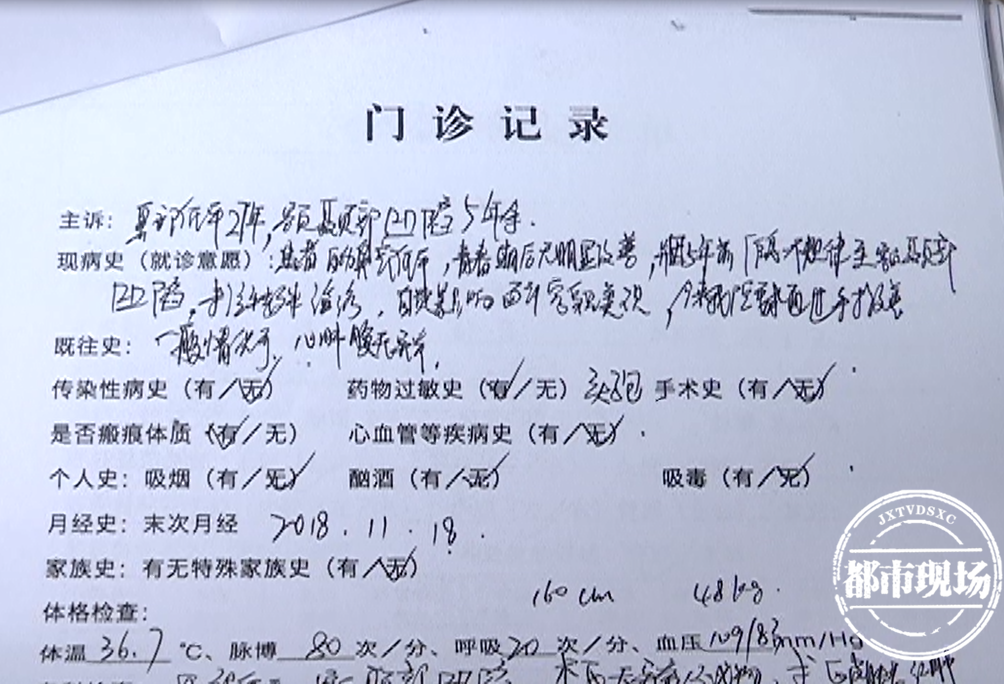 门诊记录
主诉: 鼻部低平21年,额颞顶部凹陷5年余.
现病史(就诊意愿):患者自幼鼻部低平,青春期后无明显改善,
凹陷,未经特殊治疗,自觉影响面部容貌美观,今来我院要求通过手术改善
既往史: 一般情况可,心肺腹无异常.
传染性病史(有/无) 药物过敏史(有/无)头孢 手术史(有/无)
是否瘢痕体质(有/无) 心血管等疾病史(有/无)
个人史: 吸烟(有/无) 酗酒(有/无) 吸毒(有/无)
月经史: 末次月经 2018.11.18.
家族史: 有无特殊家族史(有/无)
160cm 48kg.
体格检查:
体温36.7℃、脉博80次/分、呼吸20次/分、血压109/83mm/Hg
JXTVDSXC
都市现场